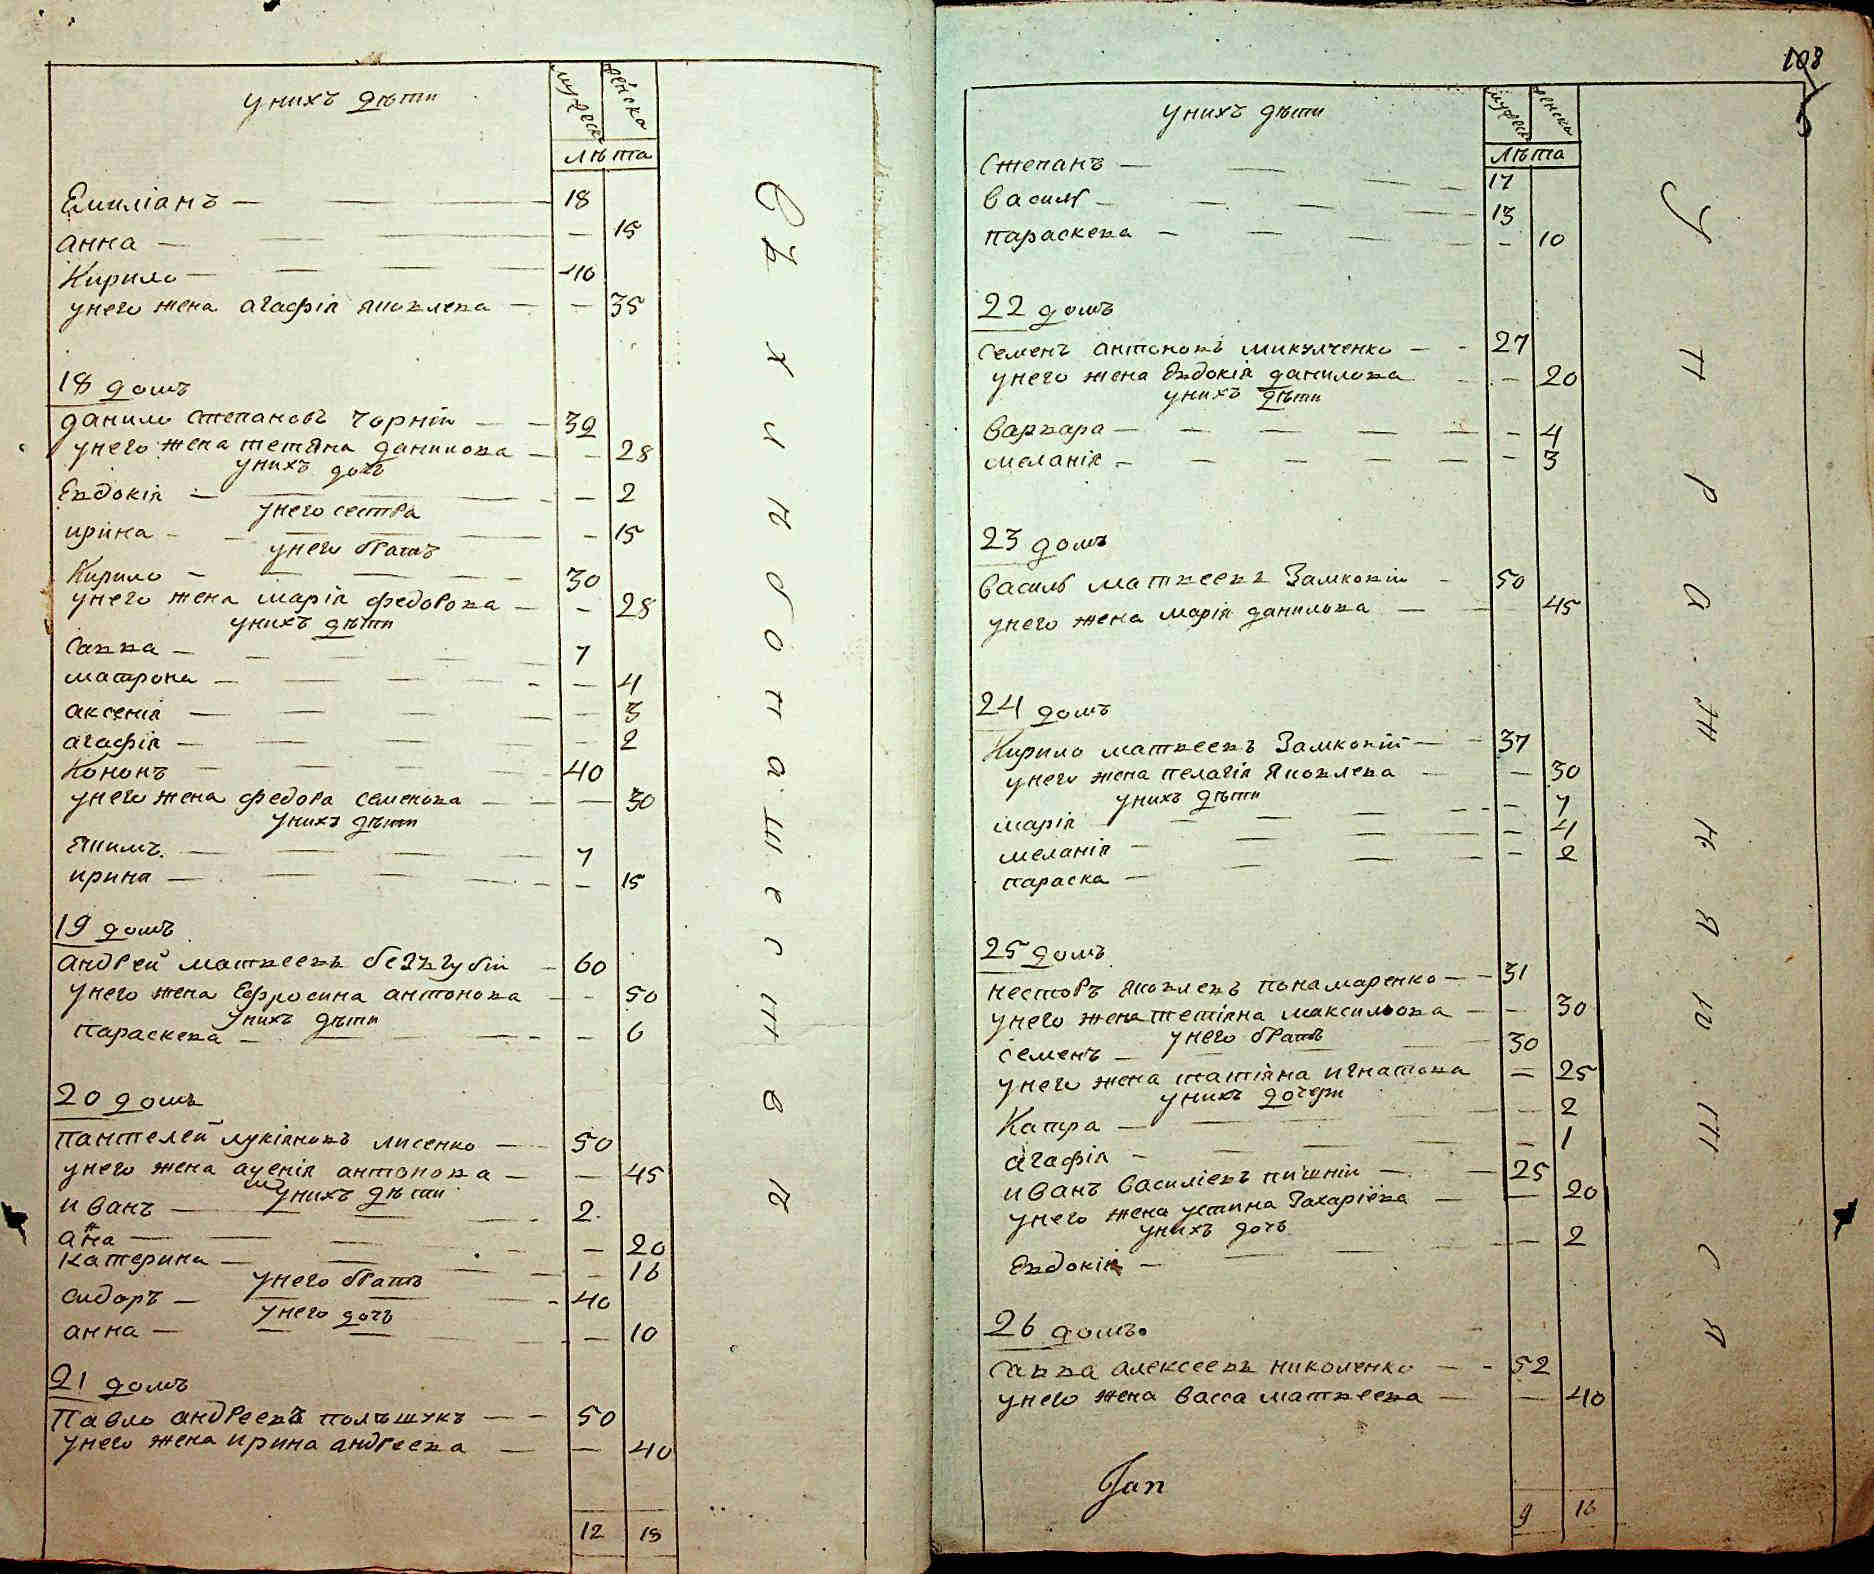 унихъ дѣти
мужеска
женска
лѣта
Емиліанъ — 18
анна — 15
Кирило — 40
унего жена агафія яковлева — 35
18 домъ
данило степановъ чорній — 32
унего жена тетяна данилова — 28
унихъ дочь
Евдокія — 2
унего сестра
ирина — 15
унего братъ
Кирило — 30
унего жена марія федорова — 28
унихъ дѣти
савва — 7
матрона — 4
аксенія — 3
агафія — 2
Кононъ — 40
унего жена федора семенова — 30
унихъ дѣти
якимъ — 7
ирина — 15
19 домъ
андрей матвеевъ безъгубій — 60
унего жена Ефросина антонова — 50
унихъ дѣти
параскева — 6
20 домъ
пантелей лукіяновъ лисенко — 50
унего жена ксенія антонова — 45
унихъ дѣти
иванъ — 2
анна — 20
катерина — 16
унего братъ
сидоръ — 40
унего дочъ
анна — 10
21 домъ
Павло андреевъ полѣщукъ — 50
унего жена ирина андреева — 40
12 18
Съ хилнбонашеств
108
унихъ дѣти
мужеск
женска
лѣта
Степанъ — 17
василь — 13
параскева — 10
22 домъ
семенъ антоновъ микулченко — 27
унего жена Евдокія данилова — 20
унихъ дѣти
варвара — 4
меланія — 3
23 домъ
василь матвеевъ Замковій — 50
унего жена марія данилова — 45
24 домъ
Кирило матвеевъ Замковій — 37
унего жена пелагія яковлева — 30
унихъ дѣти
марія — 7
меланія — 4
параска — 2
25 домъ
несторъ яковлевъ понамаренко — 31
унего жена тетіяна максимова — 30
унего братъ
семенъ — 30
унего жена татіяна игнатова — 25
унихъ дочери
Капра — 2
агафія — 1
иванъ василіевъ пишній — 25
унего жена устина Захаріева — 20
унихъ дочь
Евдокія — 2
26 домъ
савва алексеевъ николенко — 52
унего жена васса матвеева — 40
9 16
упражняются